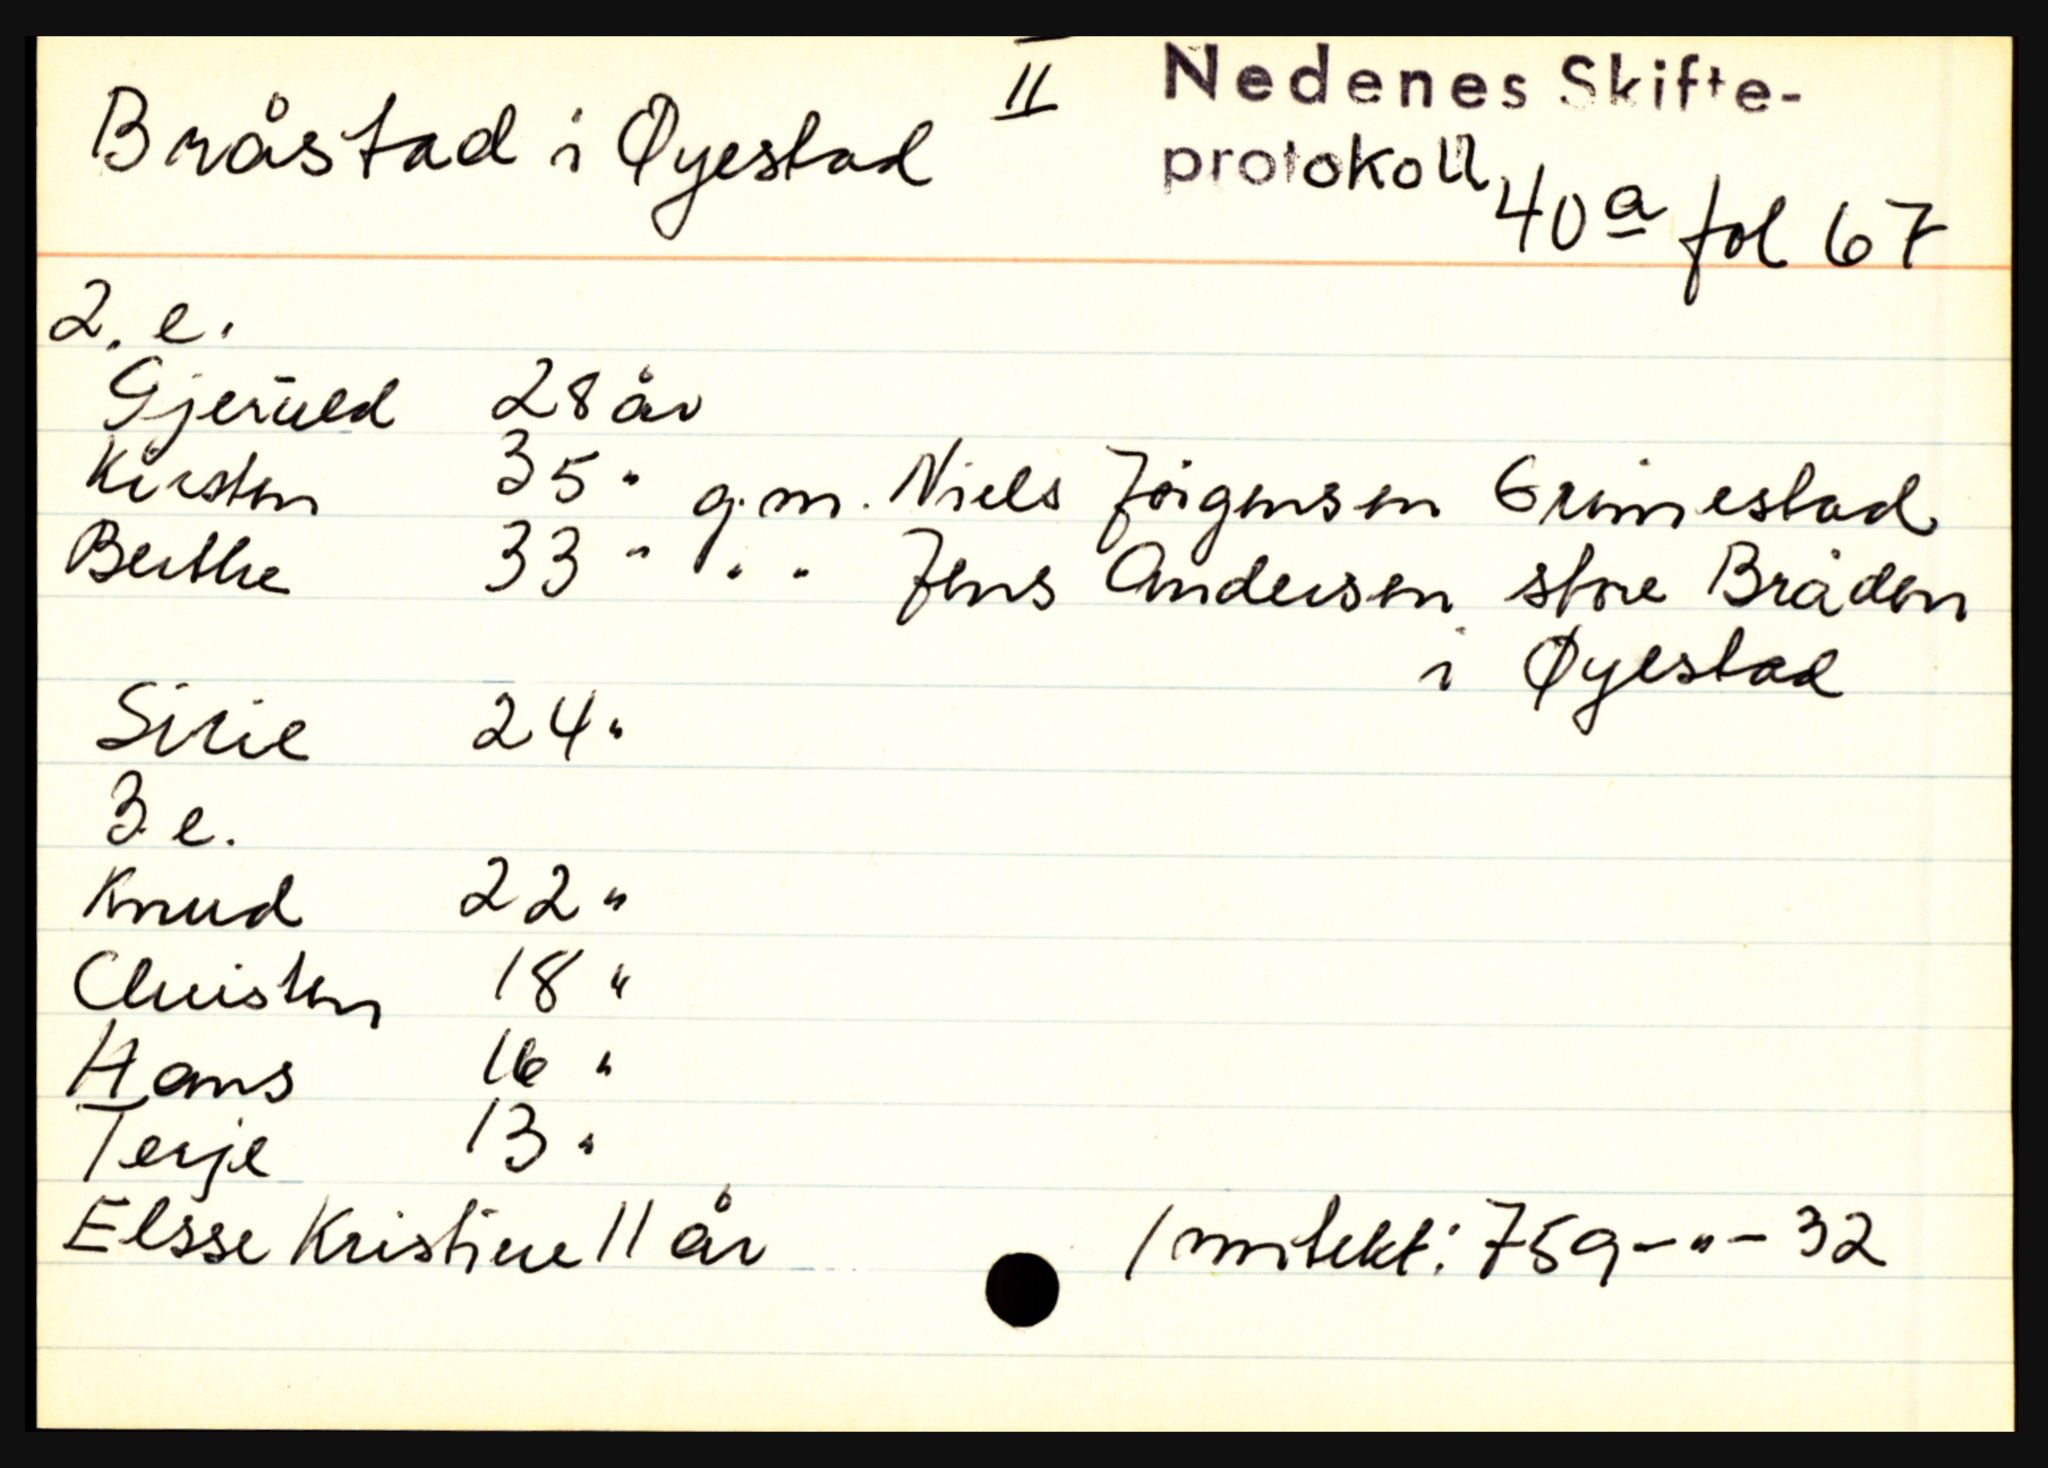 Bråstad i Øyestad II Nedenes Skifte-
protokoll 40a fol 67
2. e.
Gjeruld 28 år
Kirsten 35 " g.m. Niels Jørgensen Grimestad
Berthe 33 " " " Jens Andersen store Bråden
i Øyestad
Sirie 24 "
3 e.
Knud 22 "
Christen 18 "
Hans 16 "
Terje 13 "
Elsse Kristine 11 år / inntekt: 759-"-32